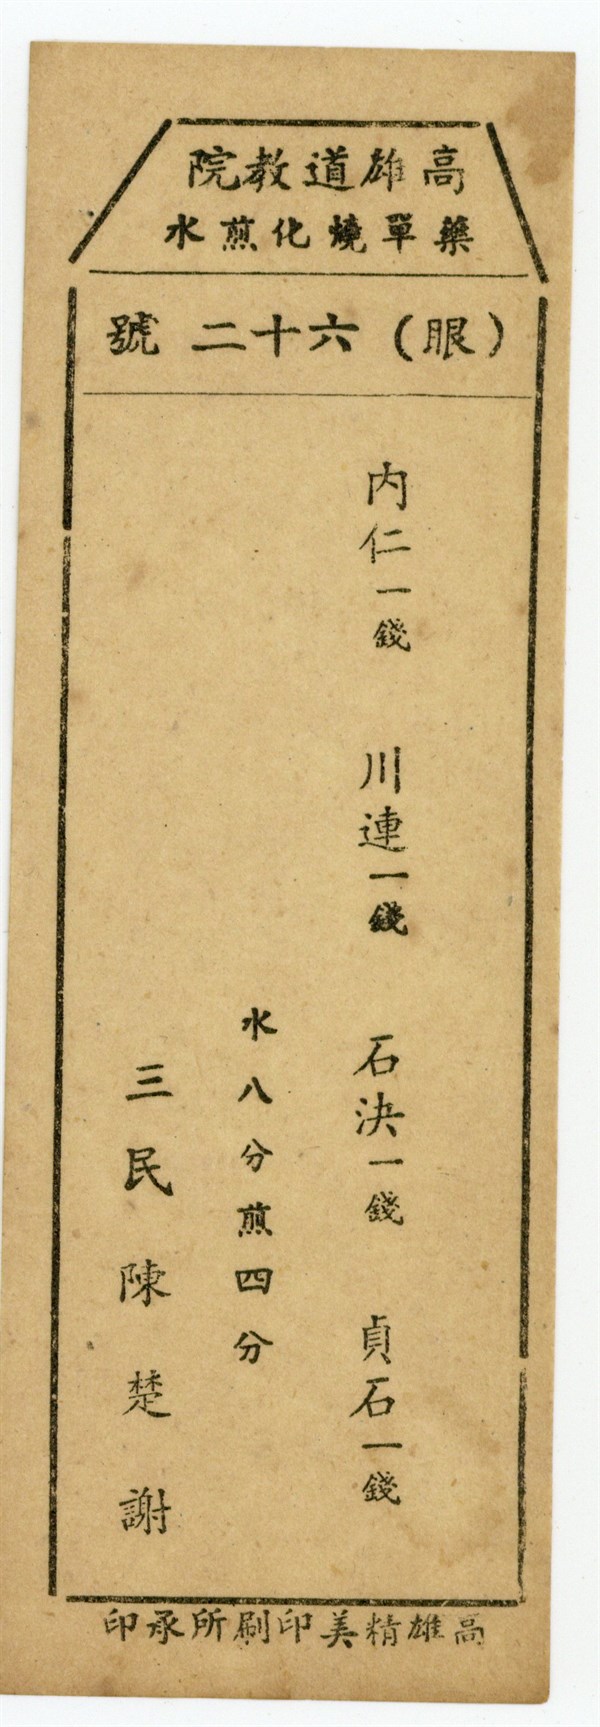 高雄道教院
藥單燒化煎水
（眼）六十二號
內仁一錢　川連一錢　石決一錢　貞石一錢
水八分煎四分
三民陳楚謝
高雄精美印刷所承印